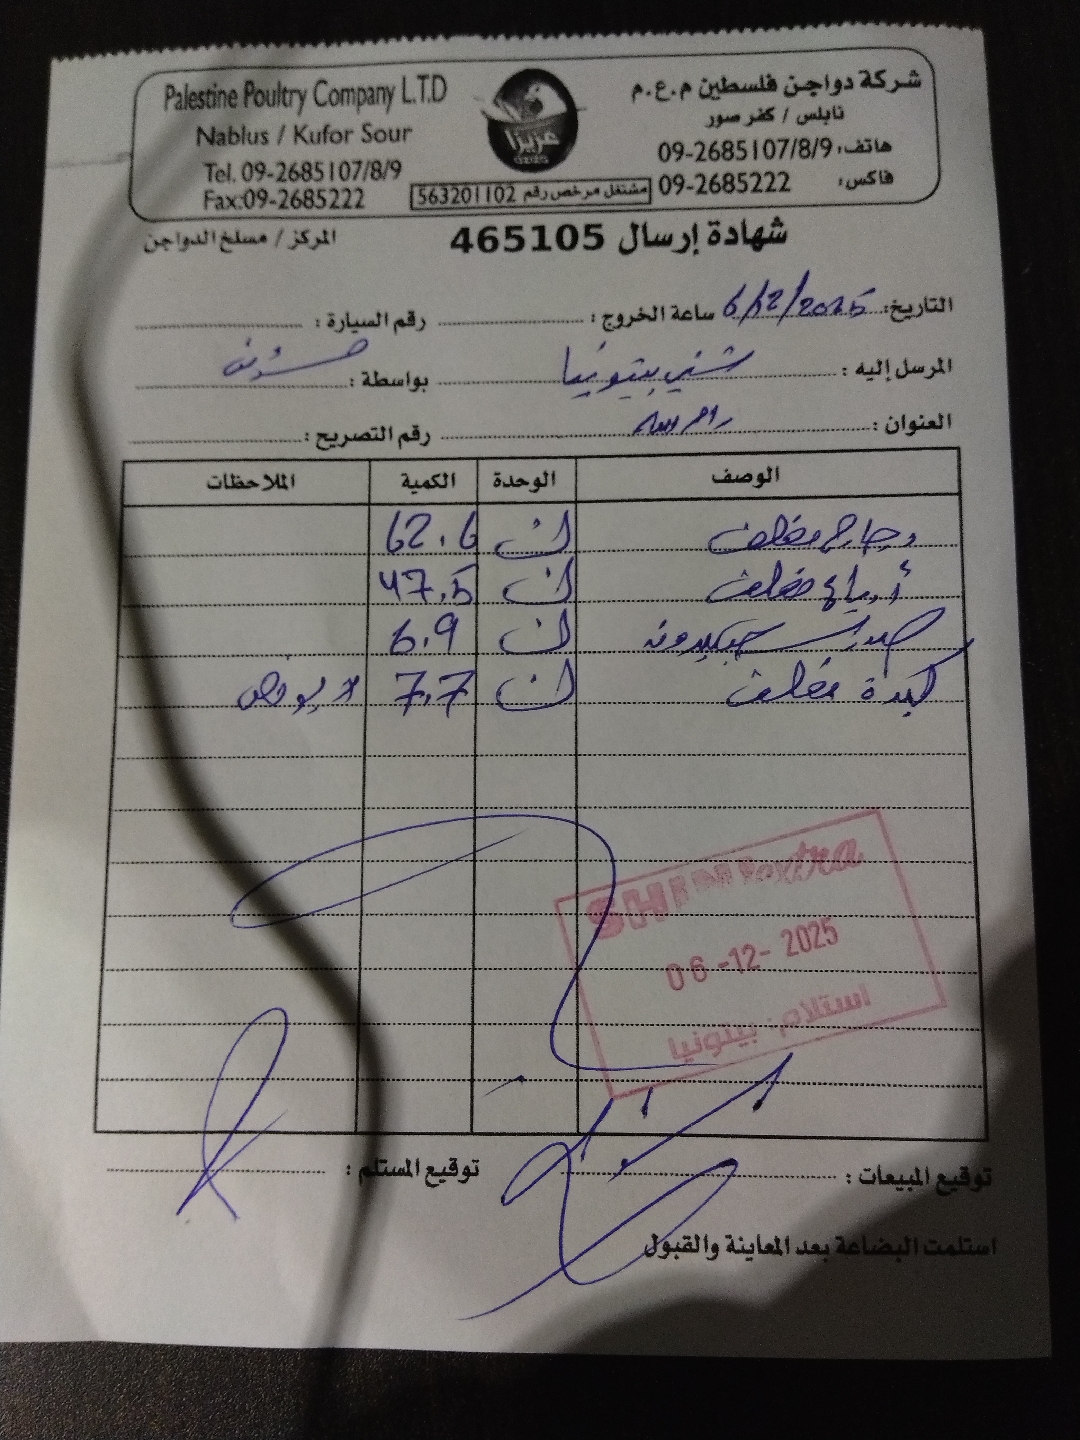 Palestine Poultry Company L.T.D
Nablus / Kufor Sour
Tel. 09-2685107/8/9
Fax:09-2685222
عزيزا
شركة دواجن فلسطين م.ع.م
نابلس / كفر صور
هاتف: 09-2685107/8/9
فاكس: 09-2685222
مشتغل مرخص رقم 563201102
شهادة إرسال 465105
المركز / مسلخ الدواجن
التاريخ: 6/12/2025 ساعة الخروج: رقم السيارة:
المرسل إليه: شني بيتونيا بواسطة:
العنوان: رام الله رقم التصريح:
الوصف الوحدة الكمية الملاحظات
دجاج مغلف ك 62.6
أرباع مغلف ك 47.5
صدر ك 6.9
كبدة مغلف ك 7.7
SHINI extra
06-12-2025
استلام بيتونيا
توقيع المبيعات: توقيع المستلم:
استلمت البضاعة بعد المعاينة والقبول